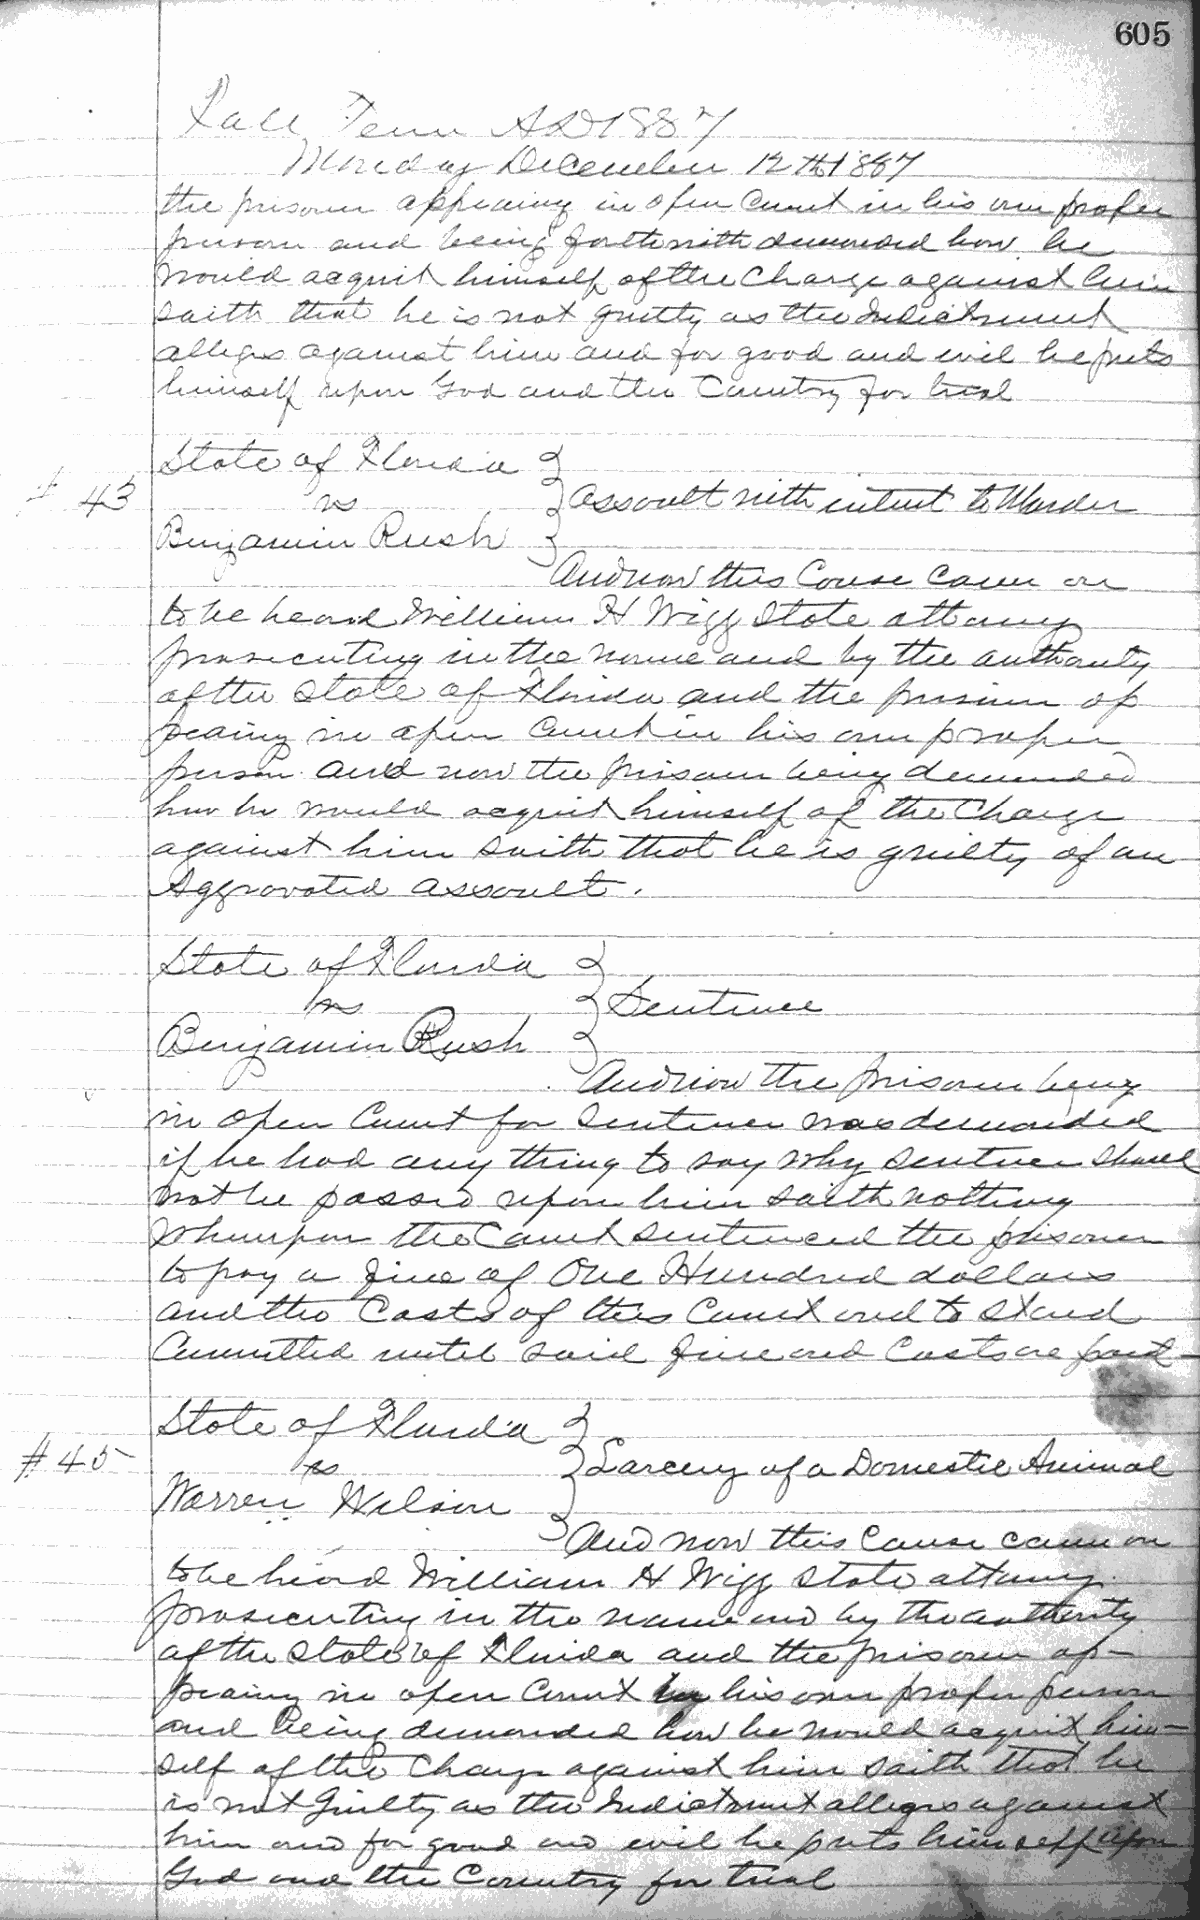 605
Fall Term AD 1887
Monday December 12th 1887
the prisoner appearing in open Court in his own proper
person and being forthwith demanded how he
would acquit himself of the Charge against him
saith that he is not guilty as the Indictment
alleges against him and for good and evil he puts
himself upon God and the Country for trial
State of Florida
# 43
vs
Assault with intent to Murder
Benjamin Rush
And now this Couse came on
to be heard William H Wigg State attorney
prosecuting in the name and by the authority
of the State of Florida and the prisoner ap
pearing in open Court in his own proper
person and now the prisoner being demanded
how he would acquit himself of the Charge
against him saith that he is guilty of an
Aggravated assault.
State of Florida
vs
Sentence
Benjamin Rush
And now the prisoner being
in open Court for Sentence was demanded
if he had any thing to say why Sentence should
not be passed upon him saith nothing
Whereupon the Court sentenced the prisoner
to pay a fine of One Hundred dollars
and the Costs of this Court and to stand
Committed until said fine and Costs are paid
State of Florida
# 45
vs
Larceny of a Domestic Animal
Warren Wilson
And now this Cause came on
to be heard William H Wigg State attorney
prosecuting in the name and by the authority
of the State of Florida and the prisoner ap-
pearing in open Court in his own proper person
and being demanded how he would acquit him-
self of the Charge against him saith that he
is not Guilty as the Indictment alleges against
him and for good and evil he puts himself upon
God and the Country for trial